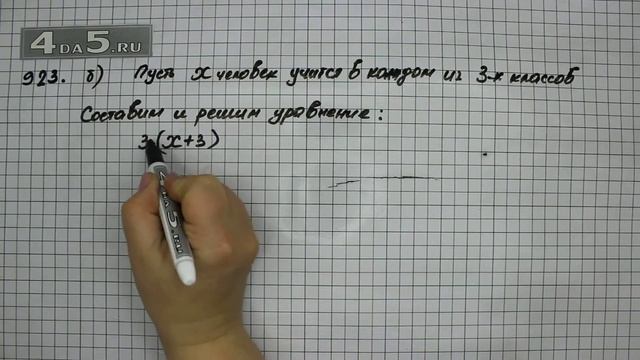 4DA5.RU
923. б) Пусть х человек учится в каждом из 3-х классов
Составим и решим уравнение:
3(х+3)